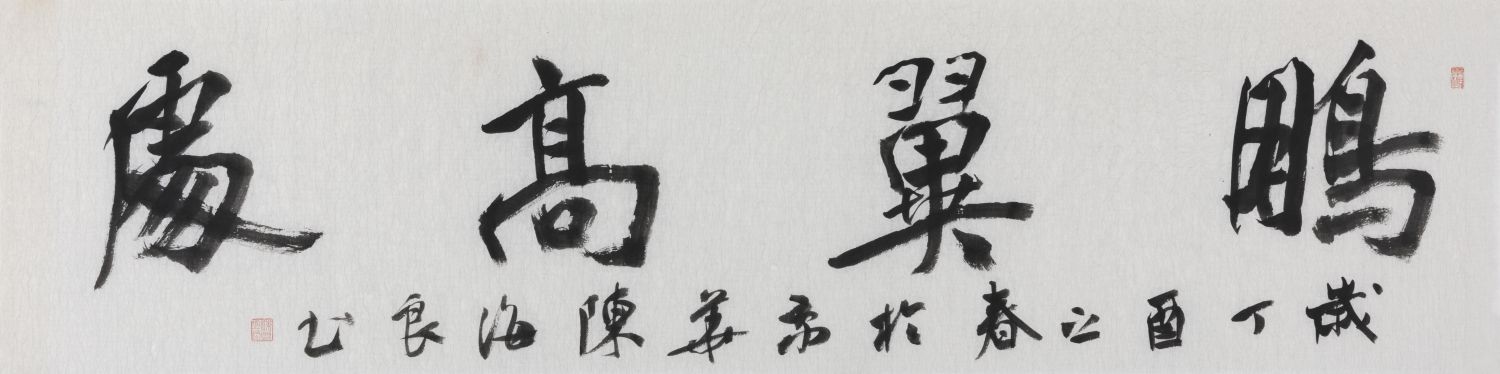 鵬翼高處
歲丁酉之春於京華陳海良書